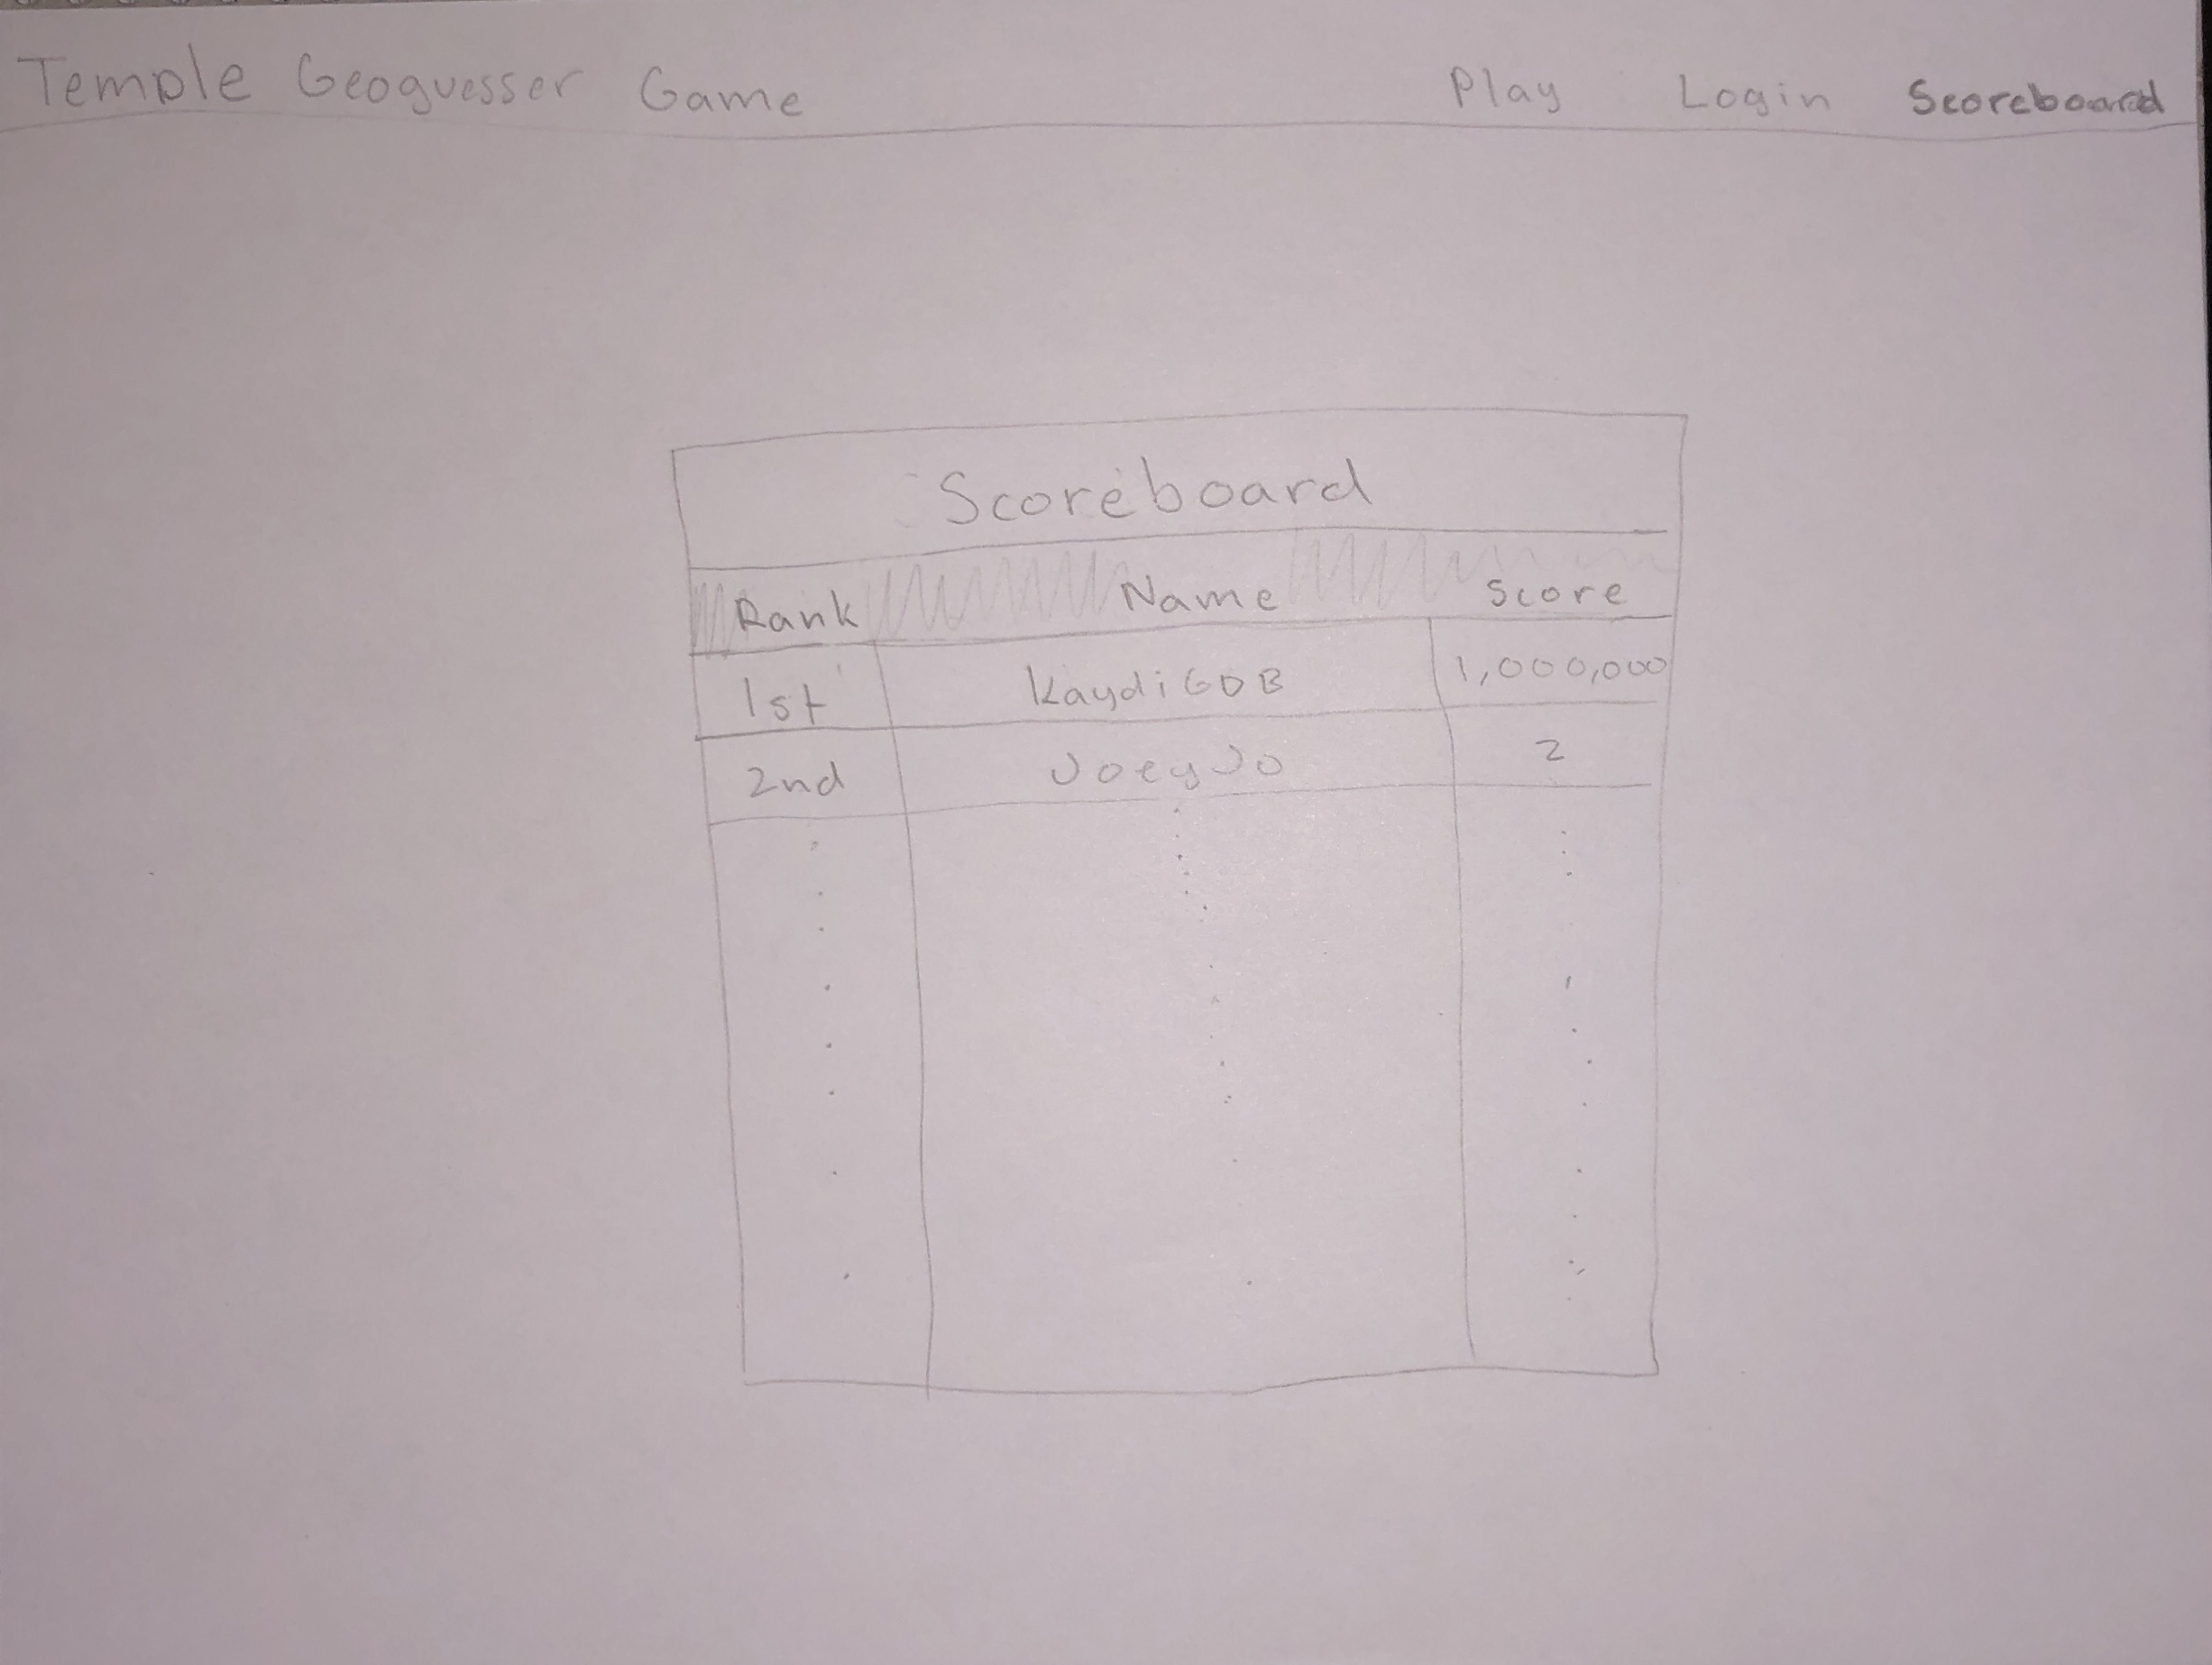 Temple Geoguesser Game Play Login Scoreboard
Scoreboard
Rank Name Score
1st KaydiGDB 1,000,000
2nd JoeyJo 2